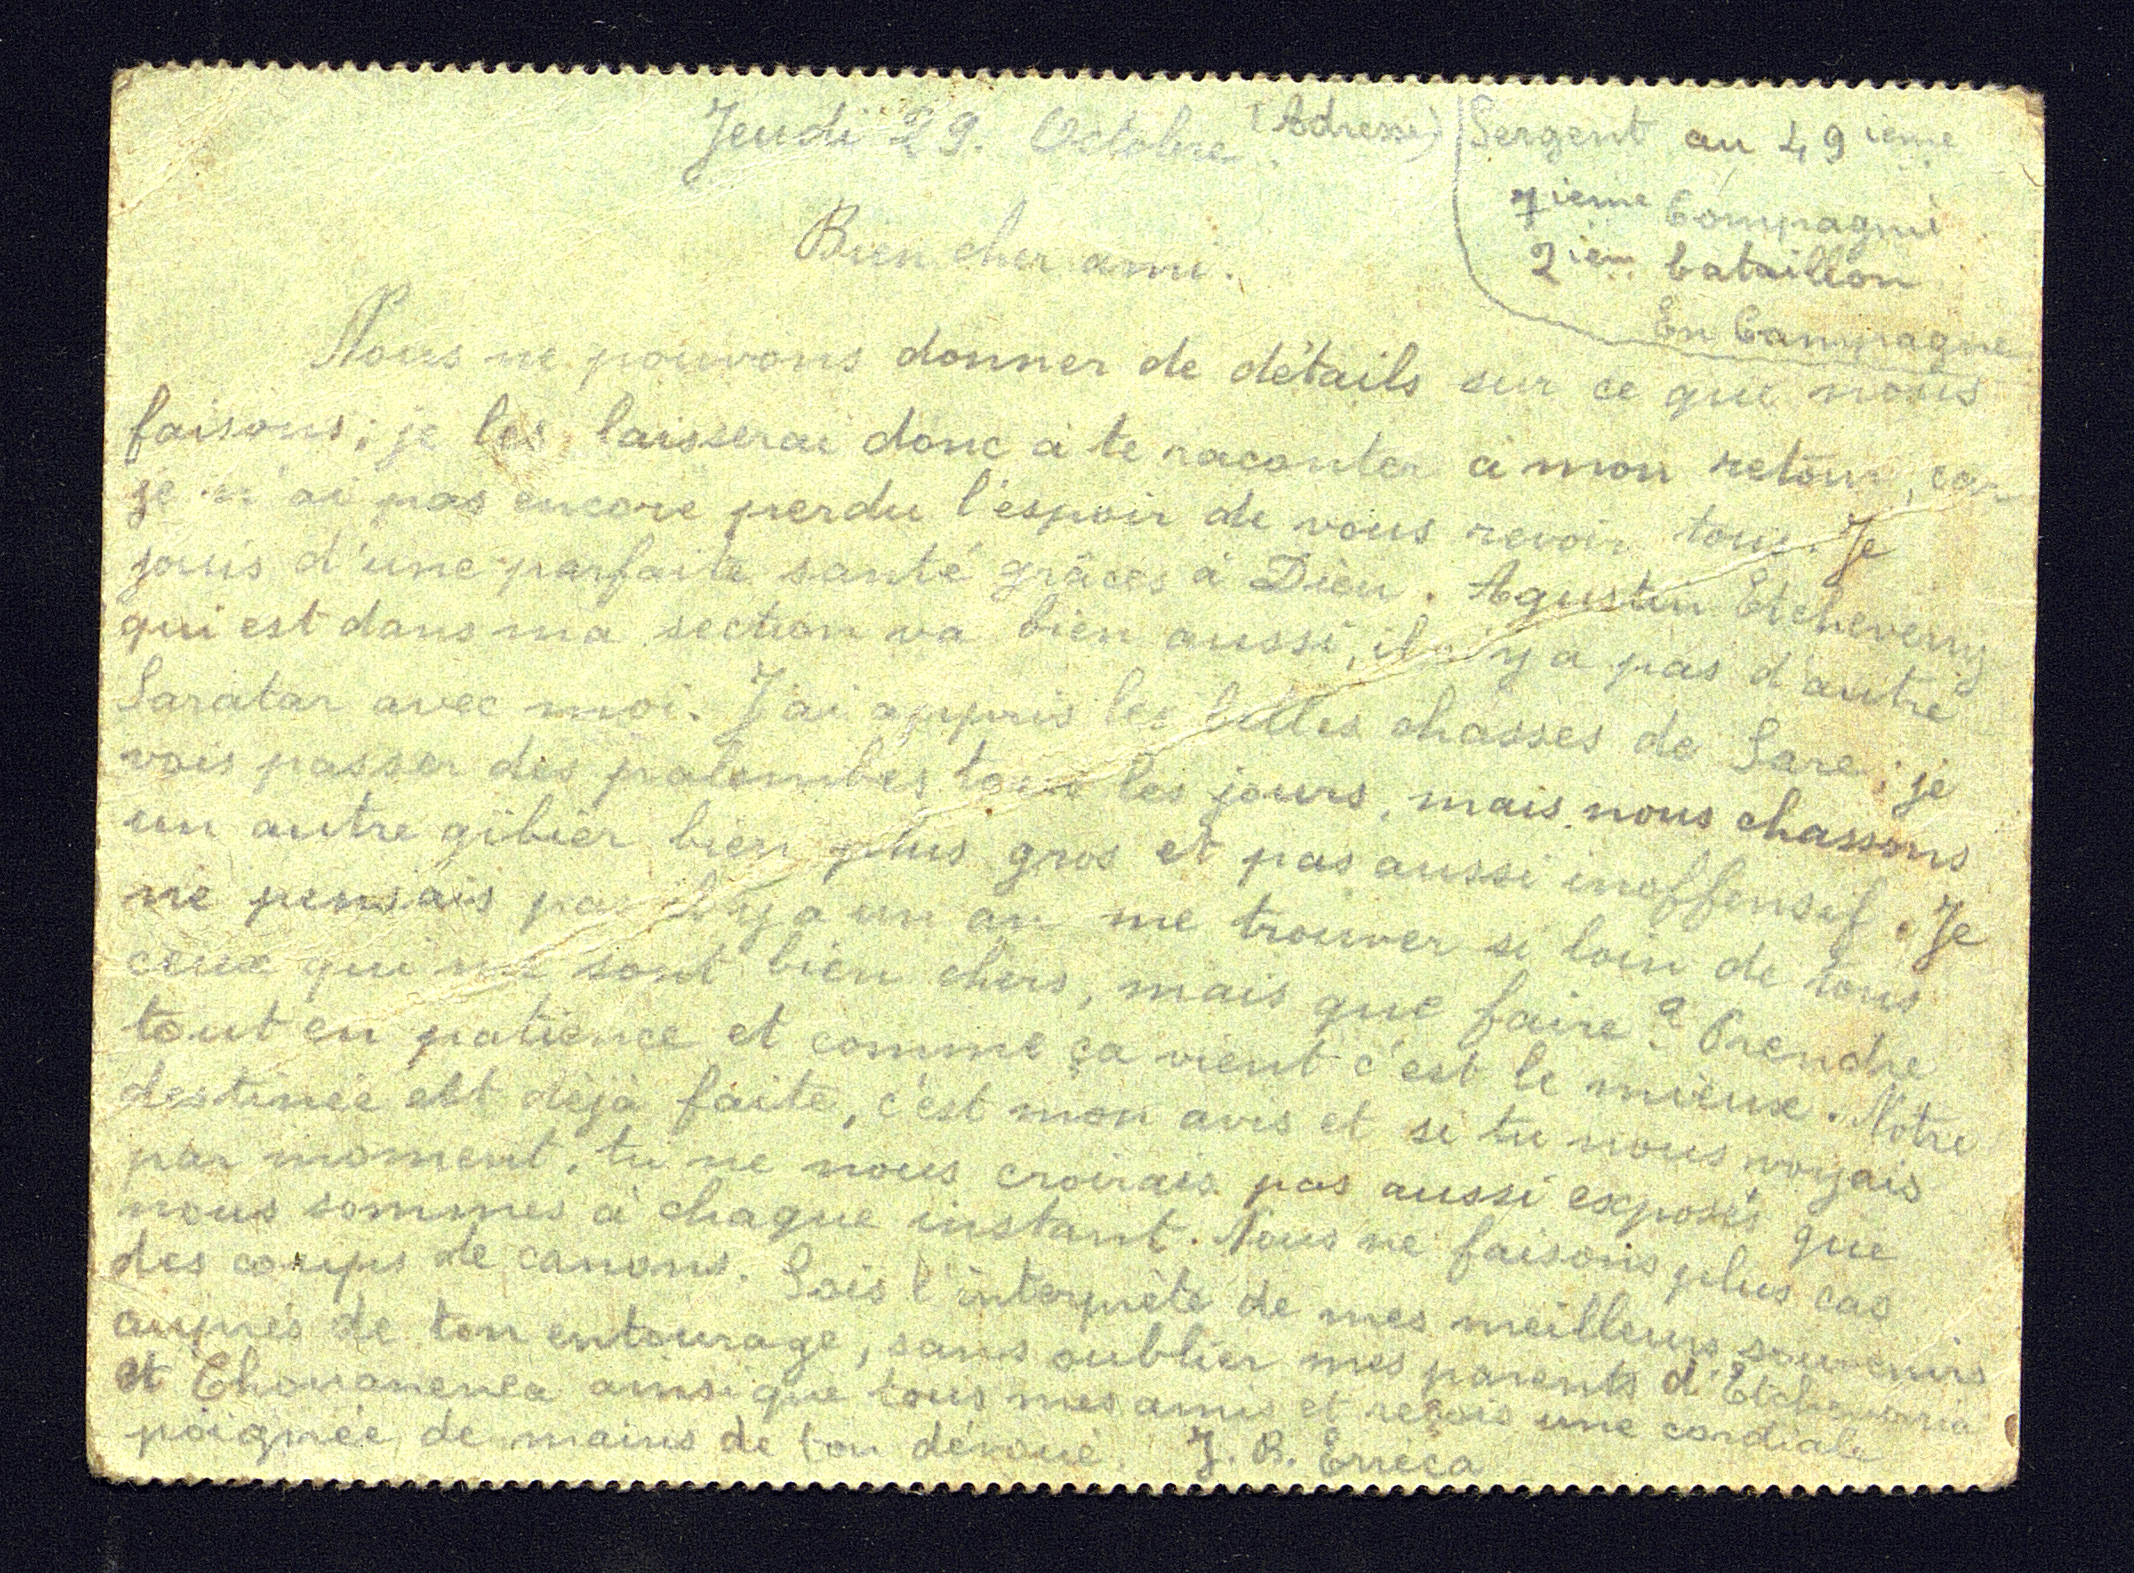 Jeudi 29. Octobre. (Adresse) Sergent au 49ième
7ième Compagni
2ièm bataillon
En Campagne
Bien cher ami.
Nous ne pouvons donner de détails sur ce que nous
faisons; je les laisserai donc à te raconter à mon retour, car
je n'ai pas encore perdu l'espoir de vous revoir tous. Je
jouis d'une parfaite santé grâces à Dieu. Agustin Etcheverry
qui est dans ma section va bien aussi, il n'y a pas d'autre
Saratar avec moi. J'ai appris les belles chasses de Sare; je
vois passer des palombes tous les jours, mais nous chassons
un autre gibier bien plus gros et pas aussi inoffensif. Je
ne pensais pas il y a un an me trouver si loin de tous
ceux qui me sont bien chers, mais que faire? Prendre
tout en patience et comme ça vient c'est le mieux. Notre
destinée est déjà faite, c'est mon avis et si tu nous voyais
par moment, tu ne nous croirais pas aussi exposés que
nous sommes à chaque instant. Nous ne faisons plus cas
des coups de canons. Sois l'interprète de mes meilleurs souvenirs
auprès de ton entourage, sans oublier mes parents d'Etcheverria
et ainsi que tous mes amis et reçois une cordiale
poignée de mains de ton dévoué. J. B. Erreça